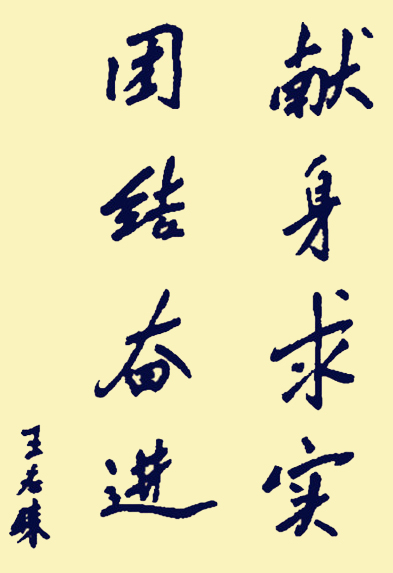 献身求实
团结奋进
王老珠